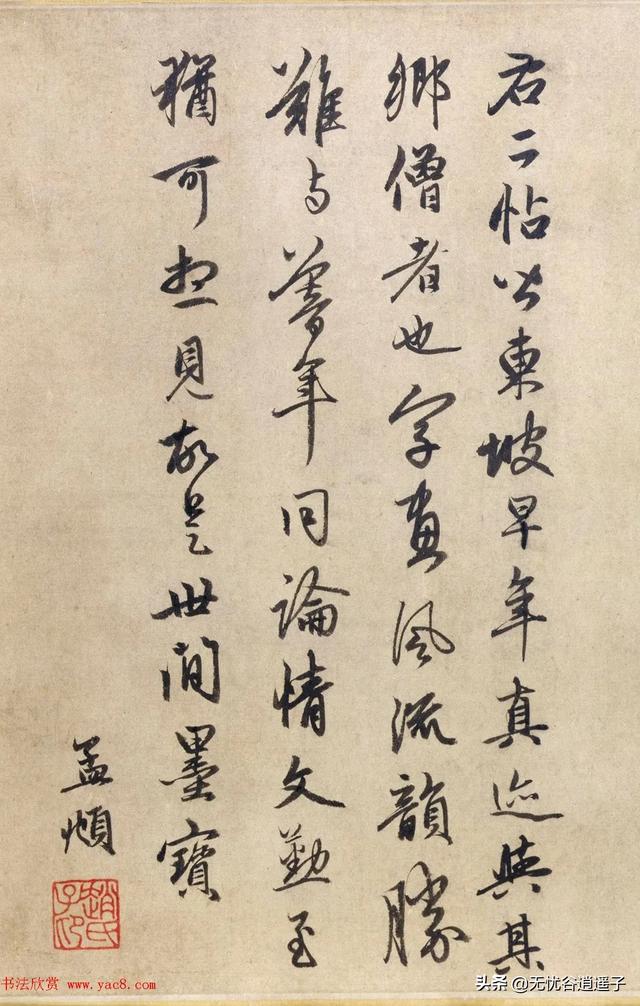 右二帖皆東坡早年真迹與其
鄉僧者也字畫風流韻勝
難與暮年同論情文勤至
猶可想見故是世間墨寶
孟頫
趙氏子昂
书法欣赏 www.yac8.com
头条 @无忧谷逍遥子